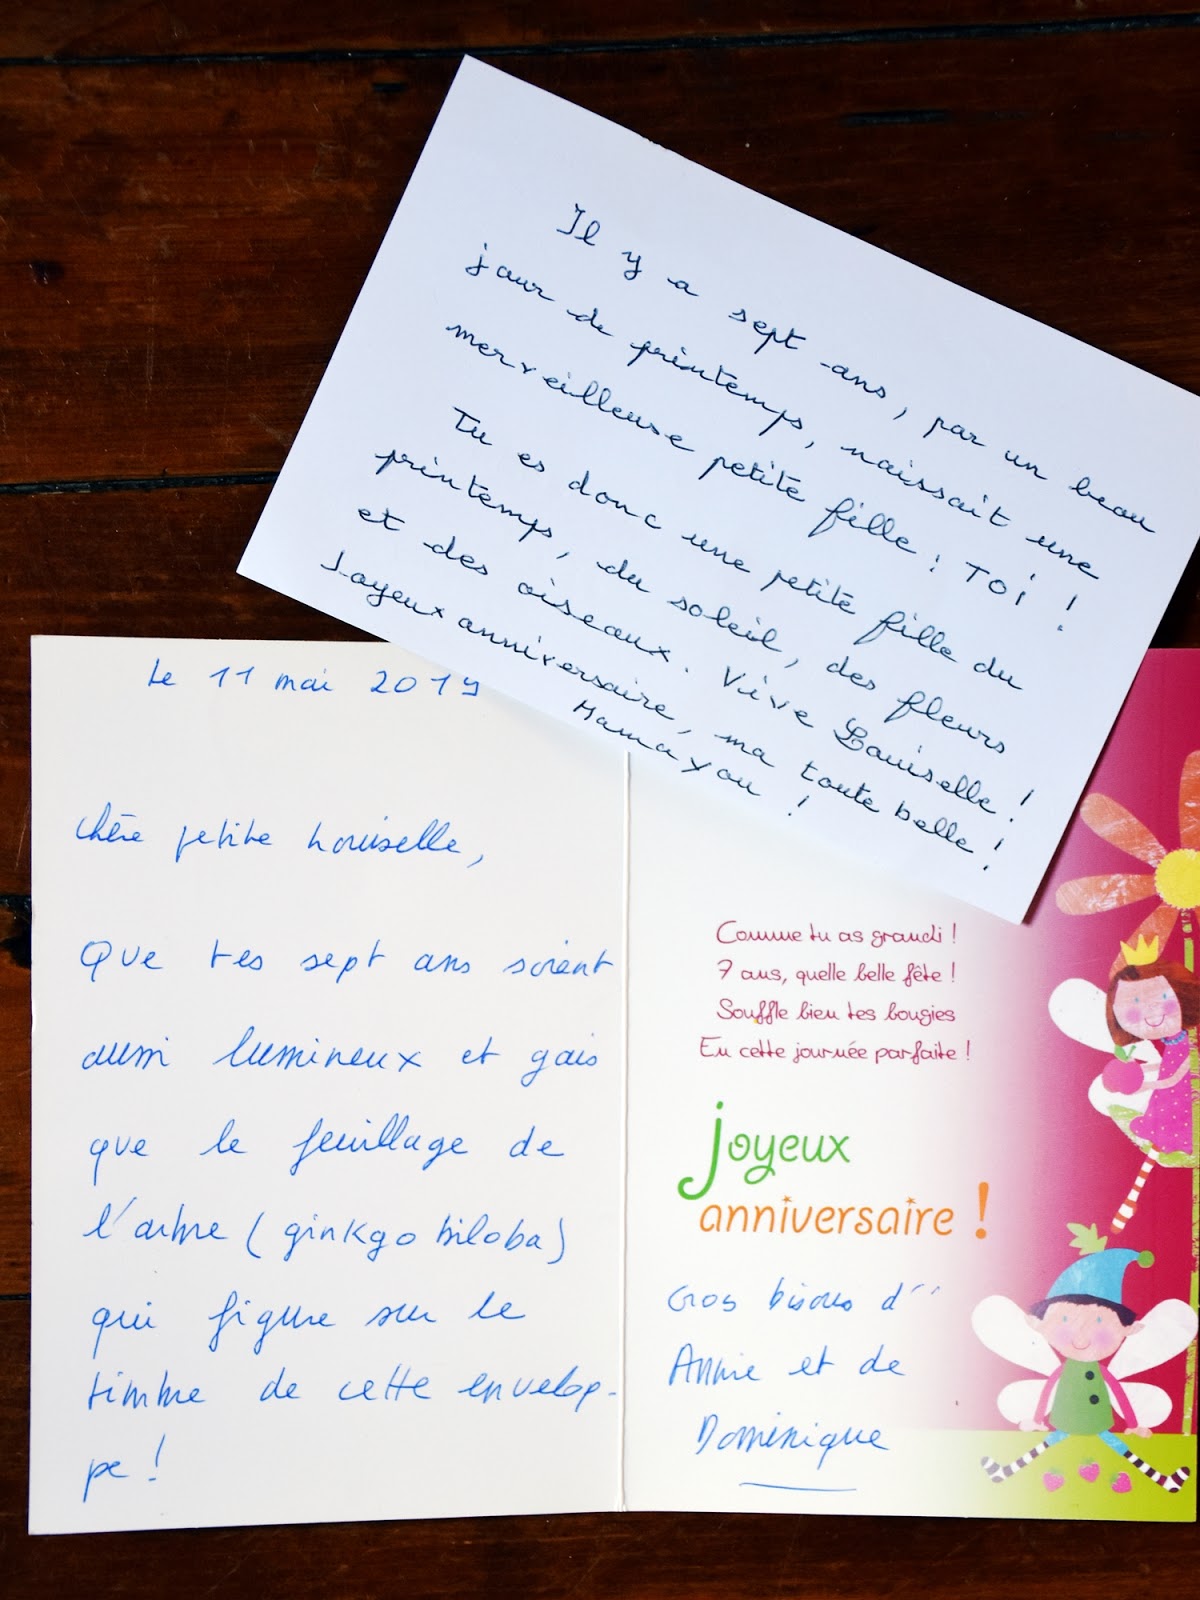 Il y a sept ans, par un beau
jour de printemps, naissait une
merveilleuse petite fille : Toi !
Tu es donc une petite fille du
printemps, du soleil, des fleurs
et des oiseaux. Vive Louiselle !
Joyeux anniversaire, ma toute belle !
Mamayou !
Le 11 mai 2019
Chère petite Louiselle,
Que tes sept ans soient
aussi lumineux et gais
que le feuillage de
l'arbre (ginkgo biloba)
qui figure sur le
timbre de cette envelop-
pe !
Comme tu as grandi !
7 ans, quelle belle fête !
Souffle bien tes bougies
En cette journée parfaite !
joyeux
anniversaire !
Gros bisous d'
Annie et de
Dominique